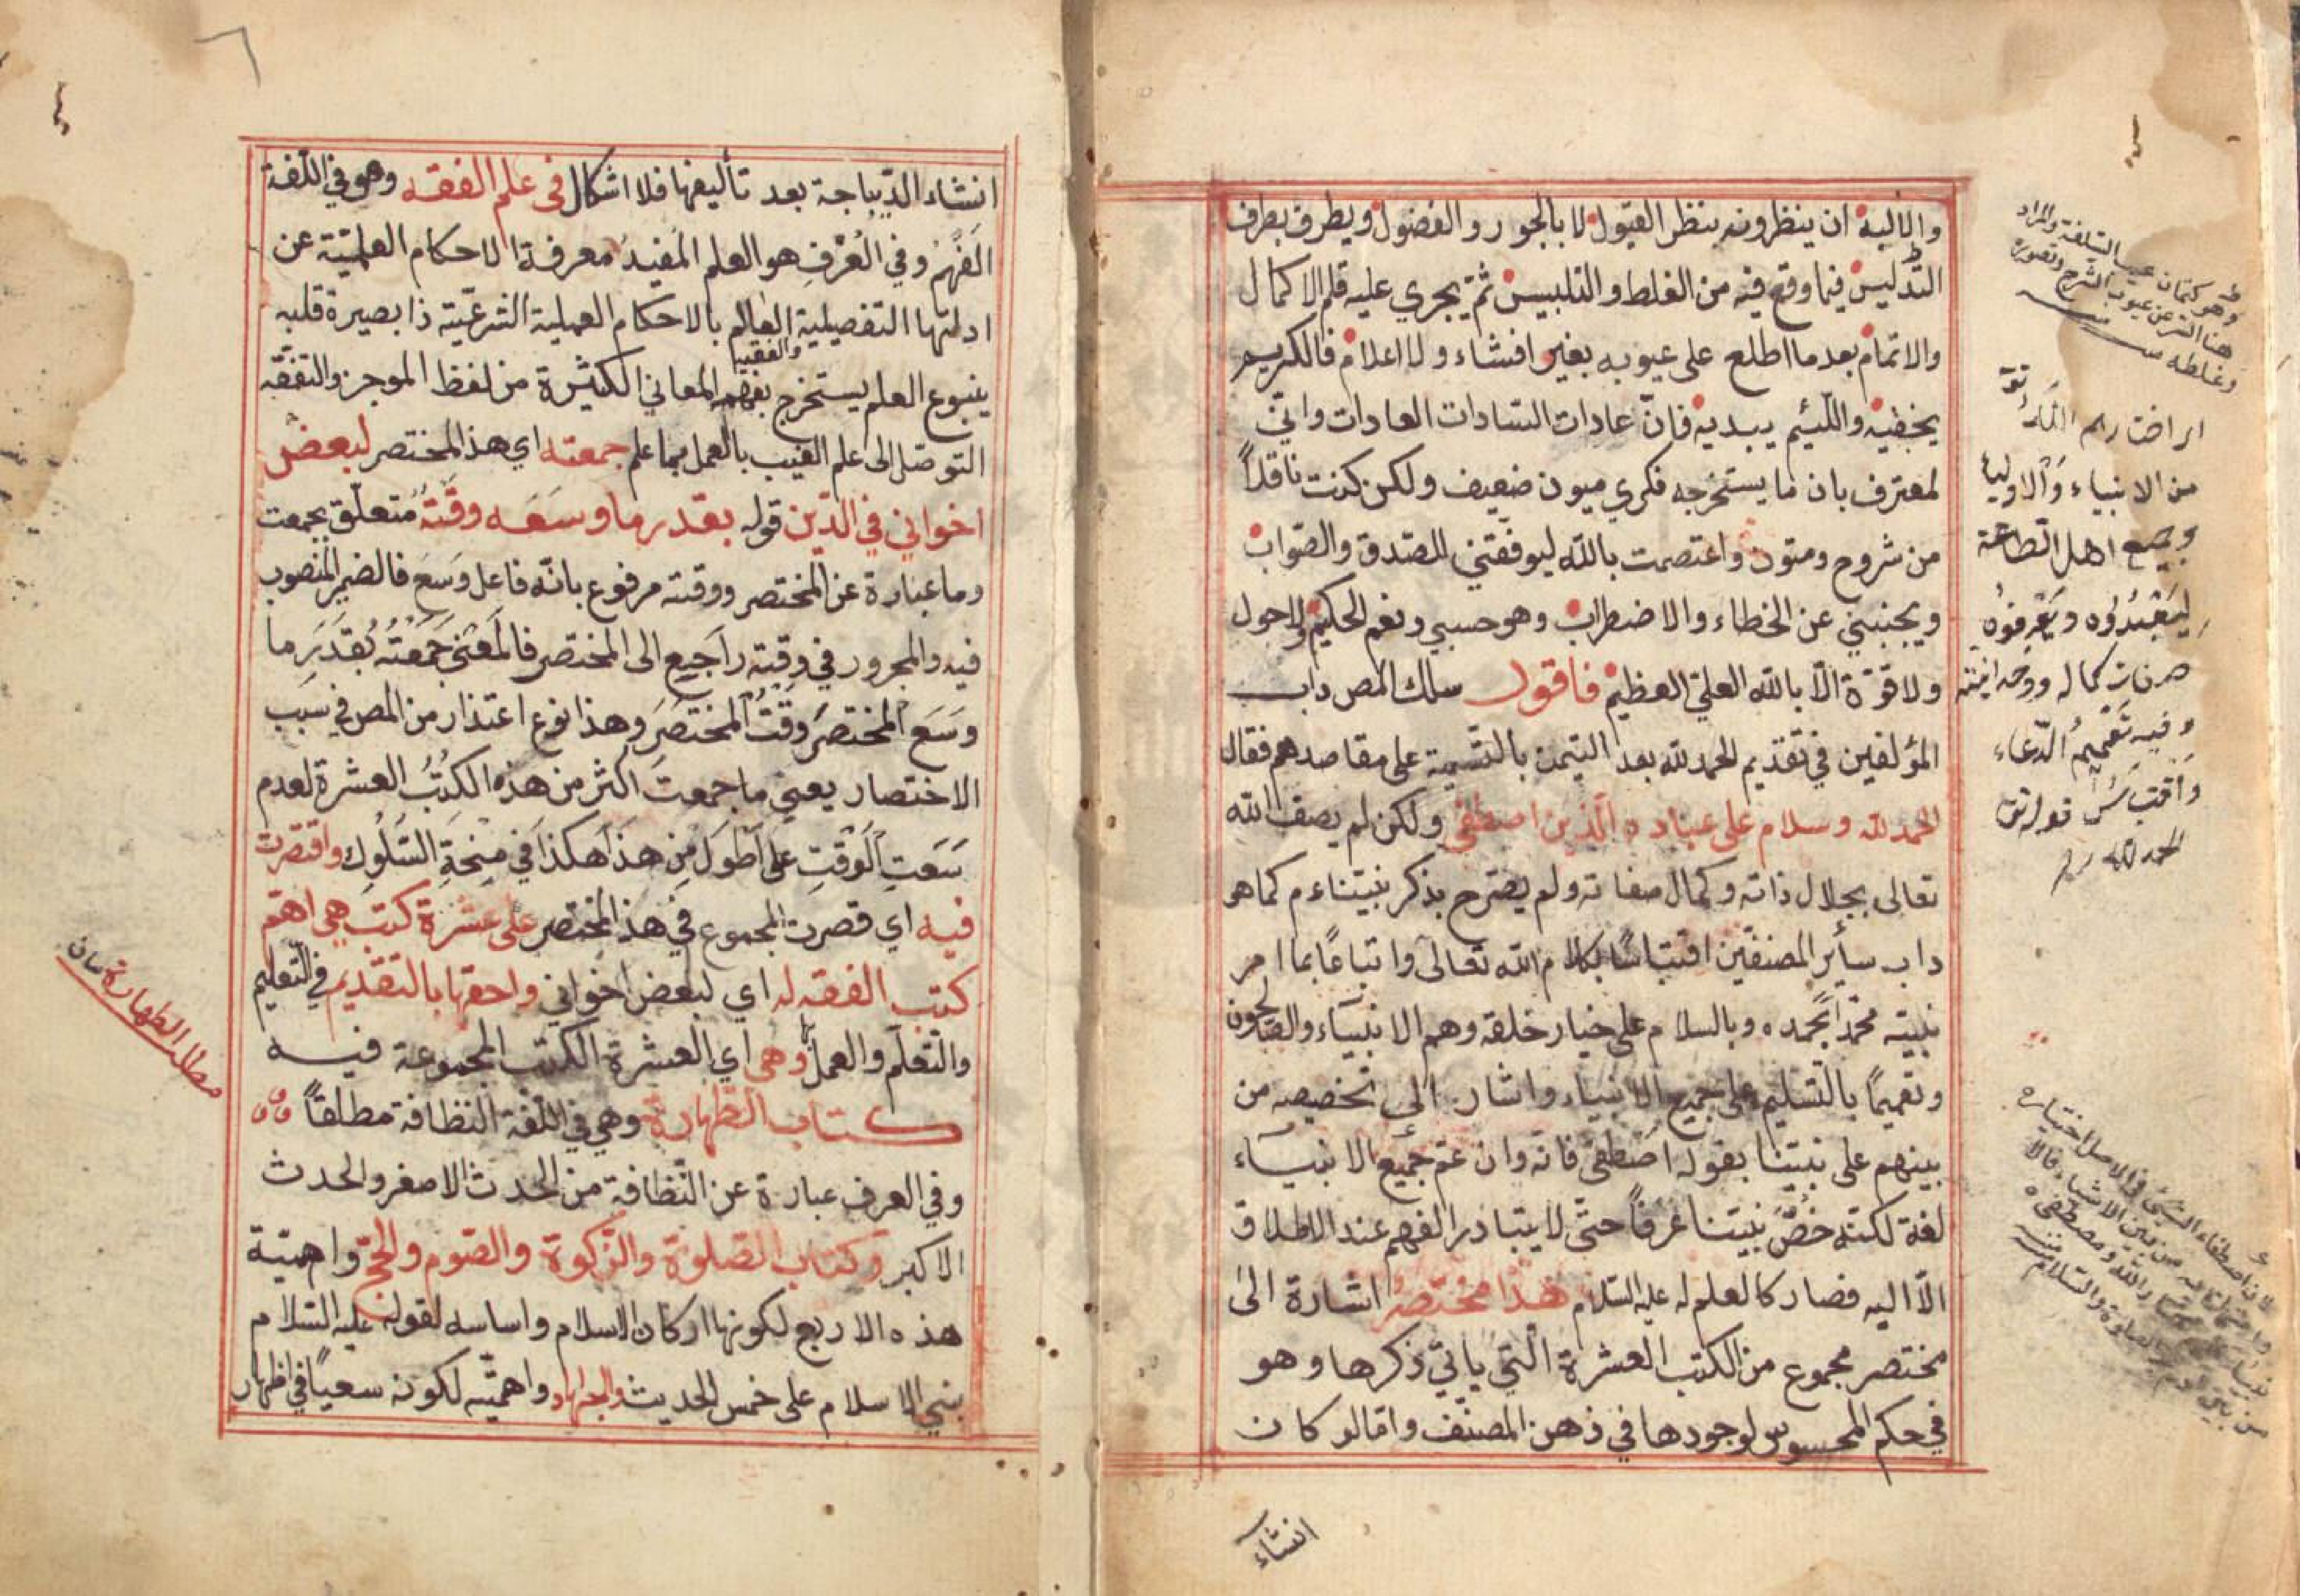 والالبة ان ينظرونه بنظر القبول لا بالجور والفضول ويطرف بطرف
التدليس فيما وقع فيه من الغلط والتلبيس ثم يجري عليه قلم الاكمال
والاتمام بعد ما اطلع على عيوبه بغير افشاء ولا اعلام فالكريم
يخفيه واللئيم يبديه فان عادات السادات العادات واني
لمعترف بان ما يستخرجه فكري ميون ضعيف ولكن كنت ناقلاً
من شروح ومتون واعتصمت بالله ليوفقني للصدق والصواب
ويجنبني عن الخطاء والاضطراب وهو حسبي ونعم الحكيم ولاحول
ولا قوة الا بالله العلي العظيم فاقول سلك المص داب
المؤلفين في تقديم الحمد لله بعد التيمن بالتسمية على مقاصدهم فقال
الحمد لله وسلام على عباده الذين اصطفى ولكن لم يصف الله
تعالى بجلال ذاته وكمال صفاته ولم يصرح بذكر نبيناءم كما هو
داب سائر المصنفين اقتباسًا بكلام الله تعالى واتباعًا بما امر
نبيه محمدًا بحمده وبالسلام على خيار خلقه وهم الانبياء والصالحون
وتعميمًا بالتسليم على جميع الانبياء واشار الى تخصيصه من
بينهم على نبينا بقوله اصطفى فانه وان عم جميع الانبياء
لغة لكنه خُصَّ نبينا عرفاً حتى لا يتبادر الفهم عند الاطلاق
الا اليه فصار كالعلم له عليه السلام هذا مختصر اشارة الى
مختصر مجموع من الكتب العشرة التي ياتي ذكرها وهو
في حكم المحسوس لوجودها في ذهن المصنف واما لو كان
انشاء
وهو كتمان عيب السلعة والمراد
هنا الستر عن عيوب الشرح وقصوره
وغلطه
من الانبياء والاولياء
وجميع اهل الطاعة
ليعبدوه ويعرفوه
وفيه تعميم الدعاء
واقتباس قوله تع
الحمد لله
لان اصطفاء الشيئ في الاصل اختياره
انشاء الديباجة بعد تأليفها فلا اشكال في علم الفقه وهو في اللغة
الفهم وفي العُرْفِ هو العلم المفيد معرفة الاحكام العلمية عن
ادلتها التفصيلية العالم بالاحكام العملية الشرعية ذا بصيرة قلبه
والفقيه
ينبوع العلم يستخرج بفهم المعاني الكثيرة من لفظ الموجز والتفقه
التوصل الى علم الغيب بالعمل بما علم جمعته اي هذا المختصر لبعض
اخواني في الدين قوله بقدر ما وسعه وقته متعلق بجمعت
وما عبارة عن المختصر ووقته مرفوع بانه فاعل وسع فالضمير المنصوب
فيه والمجرور في وقته راجع الى المختصر فالمعنى جمعته بقدر ما
وسع المختصر وقت المختصر وهذا نوع اعتذار من المص في سبب
الاختصار يعني ما جمعت اكثر من هذه الكتب العشرة لعدم
سعت الوقت على اطول من هذا هكذا في منحة السلوك واقتصرت
فيه اي قصرت المجموع في هذا المختصر على عشرة كتب هي اهم
كتب الفقه له اي لبعض اخواني واحقها بالتقديم في التعليم
والتعلم والعمل بها وهي اي العشرة الكتب المجموعة فيه
كتاب الطهارة وهي في اللغة النظافة مطلقاً
وفي العرف عبارة عن النظافة من الحدث الاصغر والحدث
الاكبر وكتاب الصلوة والزكوة والصوم والحج واهمية
هذه الاربع لكونها اركان الاسلام واساسه لقوله عليه السلام
بني الاسلام على خمس الحديث والجهاد واهميته لكونه سعيًا في اظهار
مطالب الطهارة